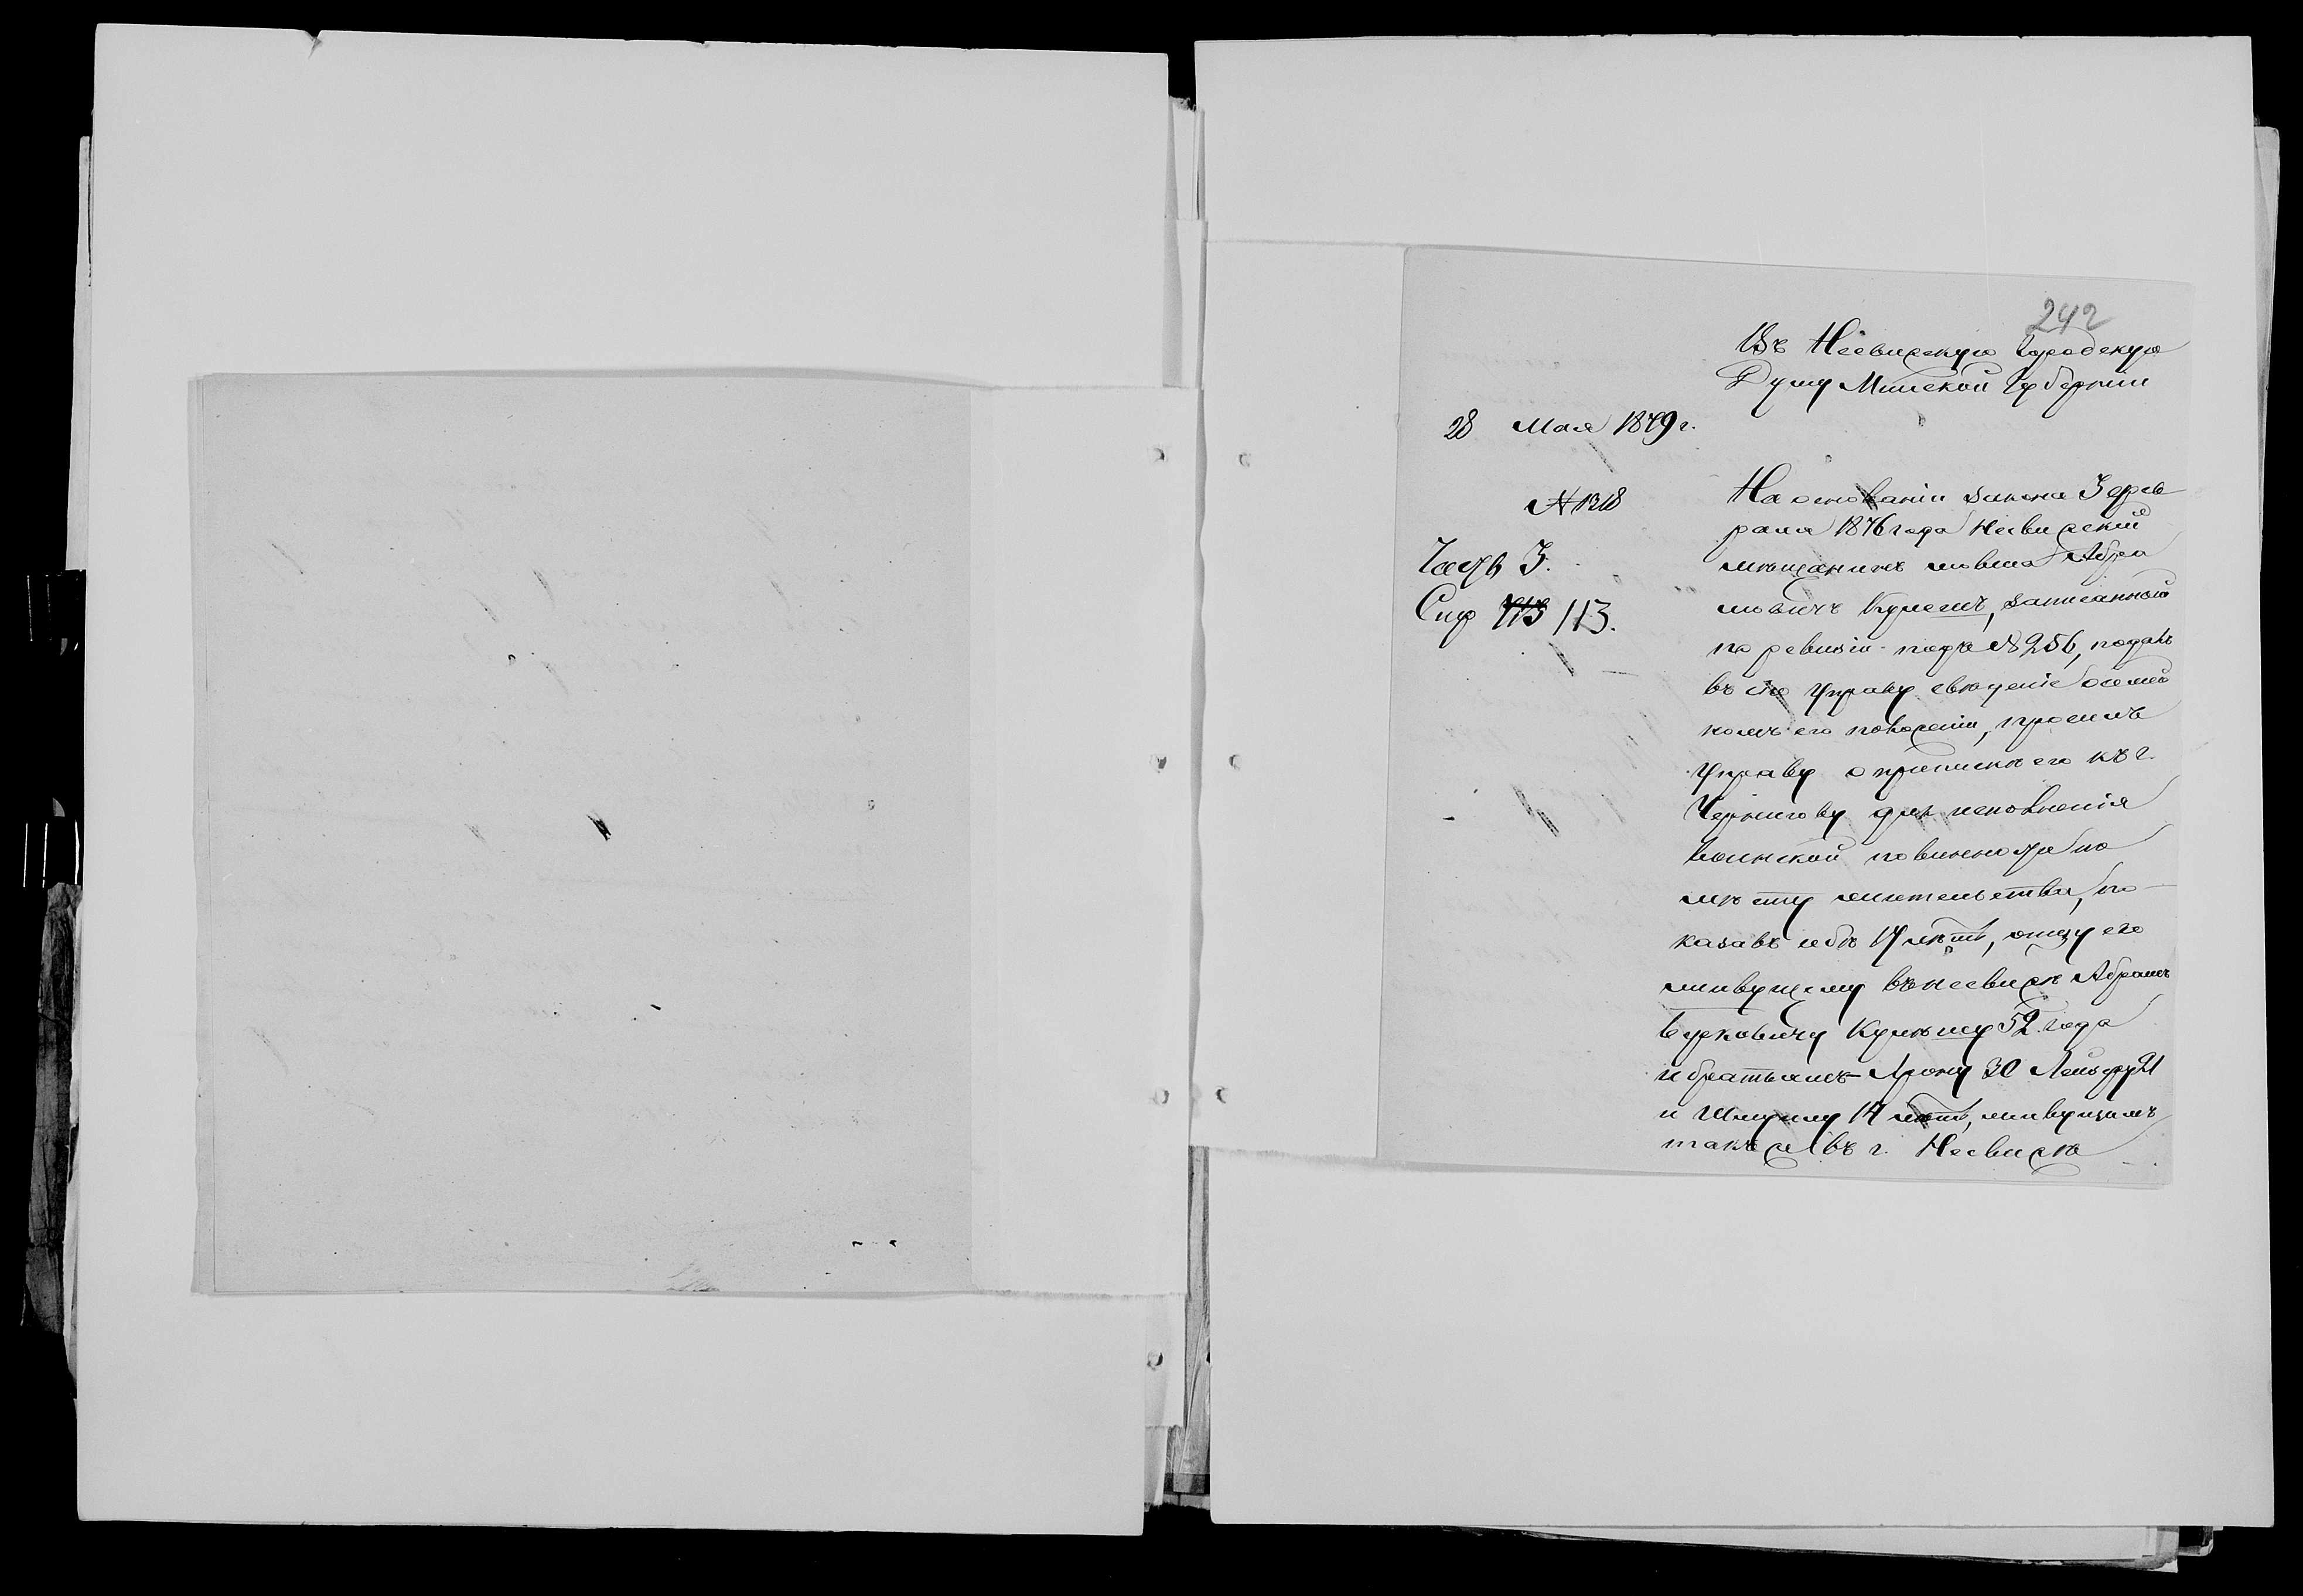 242
Въ Несвижскую Городскую
Думу Минской Губерніи
28 Мая 1879 г.
№ 1318
Часть 3.
Стр 113 / 113.
На основаніи закона 3 фев
раля 1876 года Несвижскій
мѣщанинъ Мовша Абра
мовичъ Кулешъ, записанный
по ревизіи подъ № 256, подавъ
въ сію Управу свѣденіе о семей
номъ его положеніи, проситъ
Управу о припискѣ его къ г.
Чернигову для исполненія
воинской повинности по
мѣсту жительства, по-
казавъ себѣ 17 лѣтъ, отцу его
живущему въ Несвижѣ Абраму
Берковичу Кулешу 52 года
и братьямъ Арону 30 21
и Шмуилу 14 лѣтъ, живущимъ
также въ г. Несвижѣ